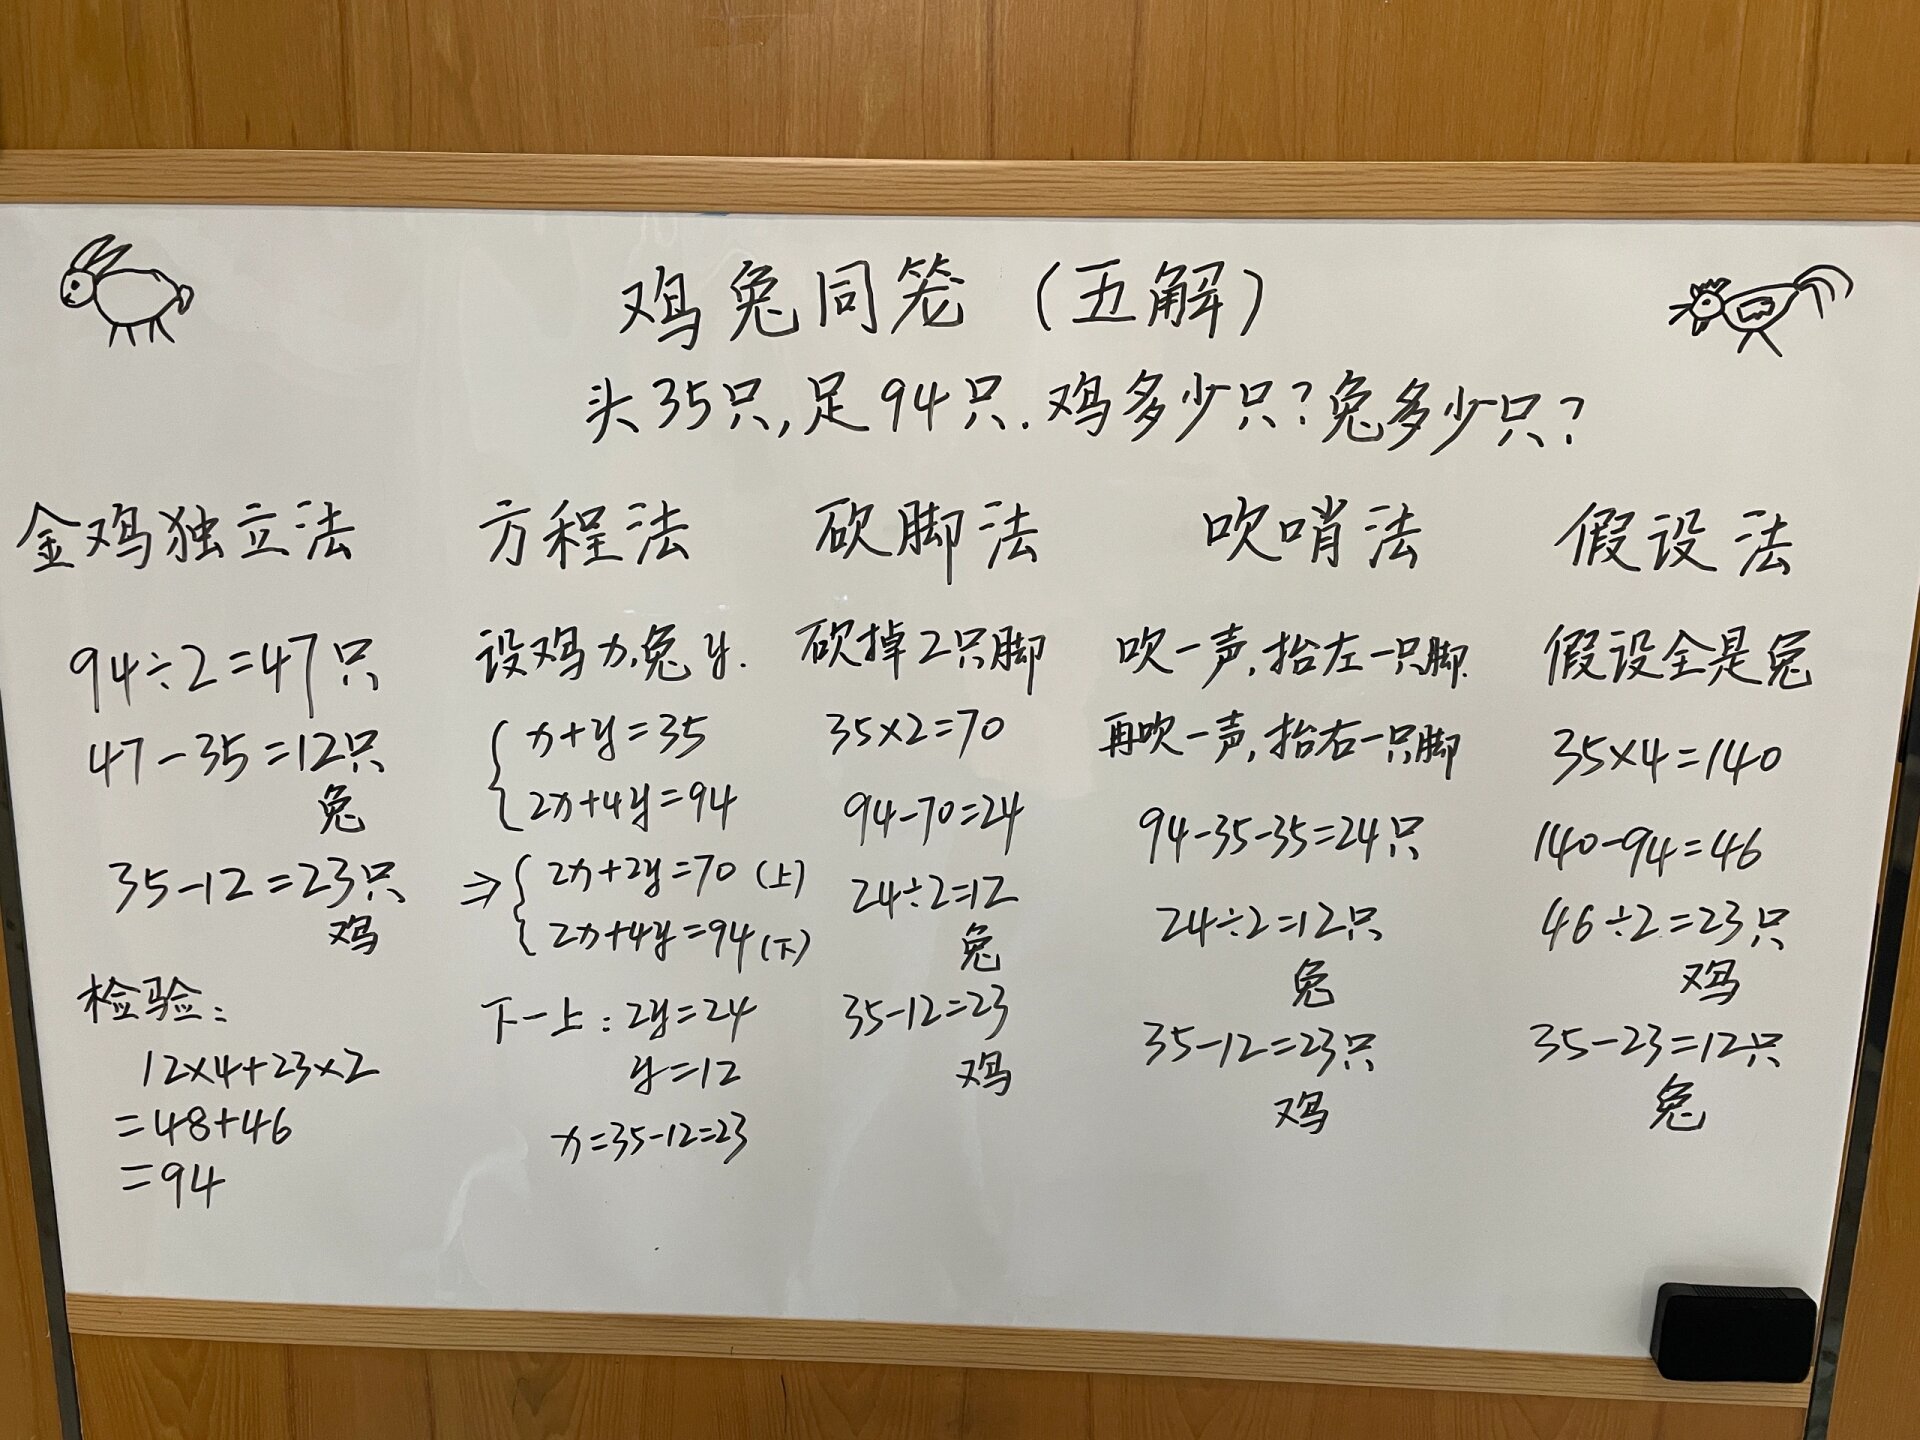 鸡兔同笼（五解）
头35只,足94只.鸡多少只?兔多少只?
金鸡独立法
94÷2=47只
47-35=12只
兔
35-12=23只
鸡
检验:
12×4+23×2
=48+46
=94
方程法
设鸡x,兔y.
x+y=35
2x+4y=94
⇒ 2x+2y=70(上)
2x+4y=94(下)
下-上:2y=24
y=12
x=35-12=23
砍脚法
砍掉2只脚
35×2=70
94-70=24
24÷2=12
兔
35-12=23
鸡
吹哨法
吹一声,抬左一只脚.
再吹一声,抬右一只脚
94-35-35=24只
24÷2=12只
兔
35-12=23只
鸡
假设法
假设全是兔
35×4=140
140-94=46
46÷2=23只
鸡
35-23=12只
兔